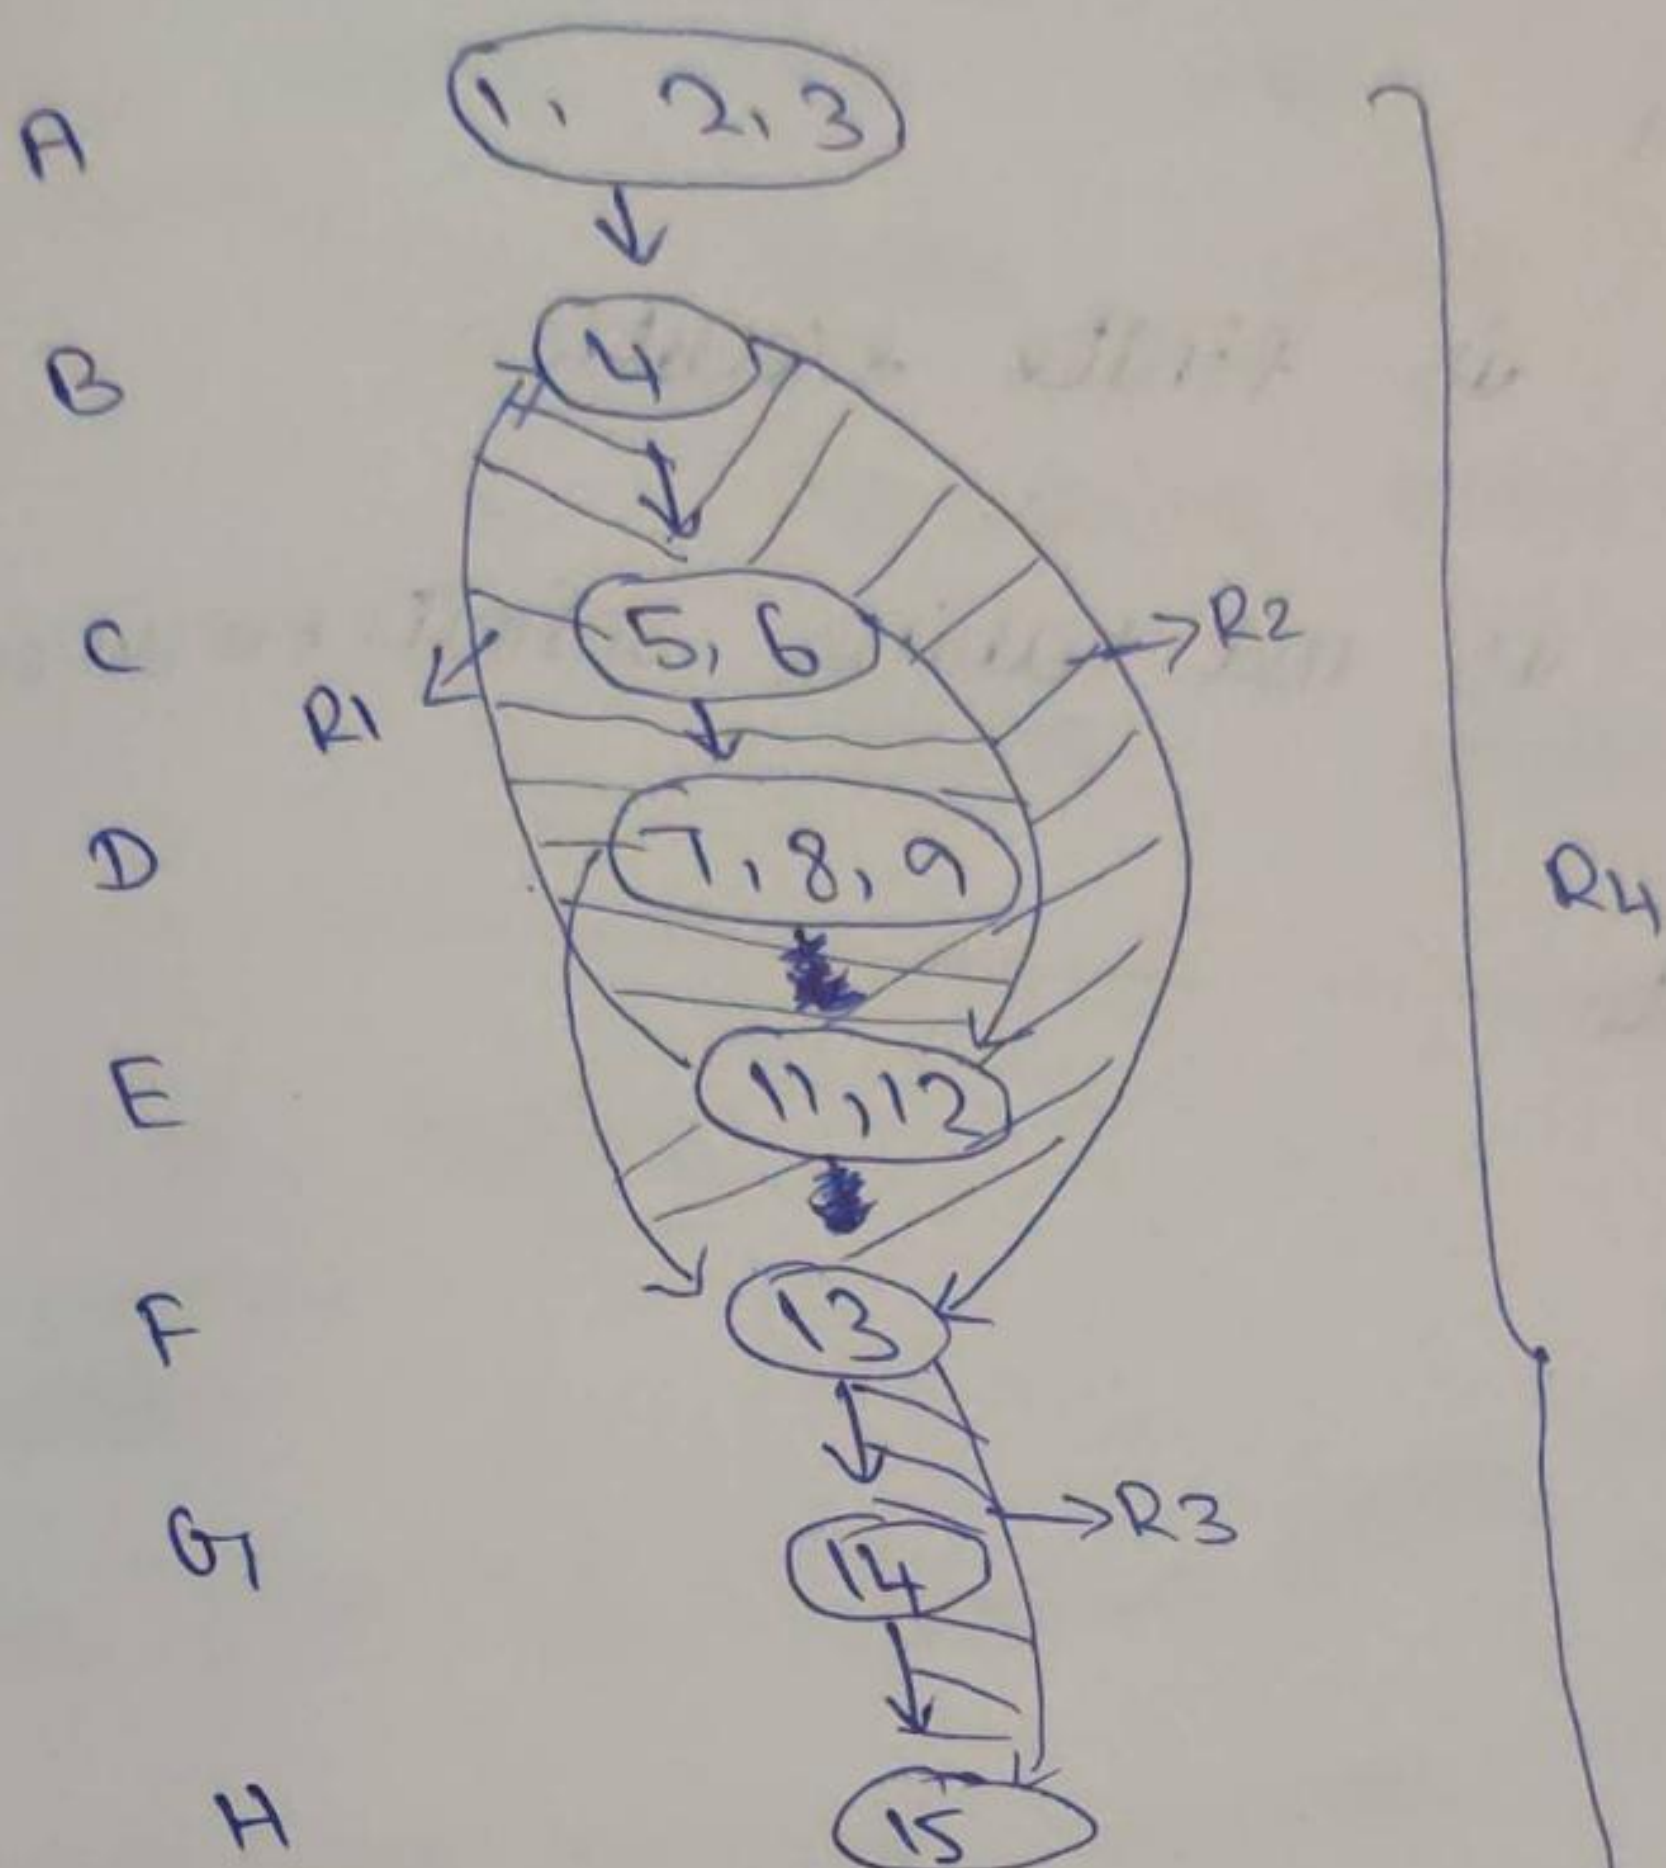 A 1, 2, 3
B 4
C 5, 6 R2
R1
D 7, 8, 9 R4
E 11, 12
F 13
G R3
14
H 15